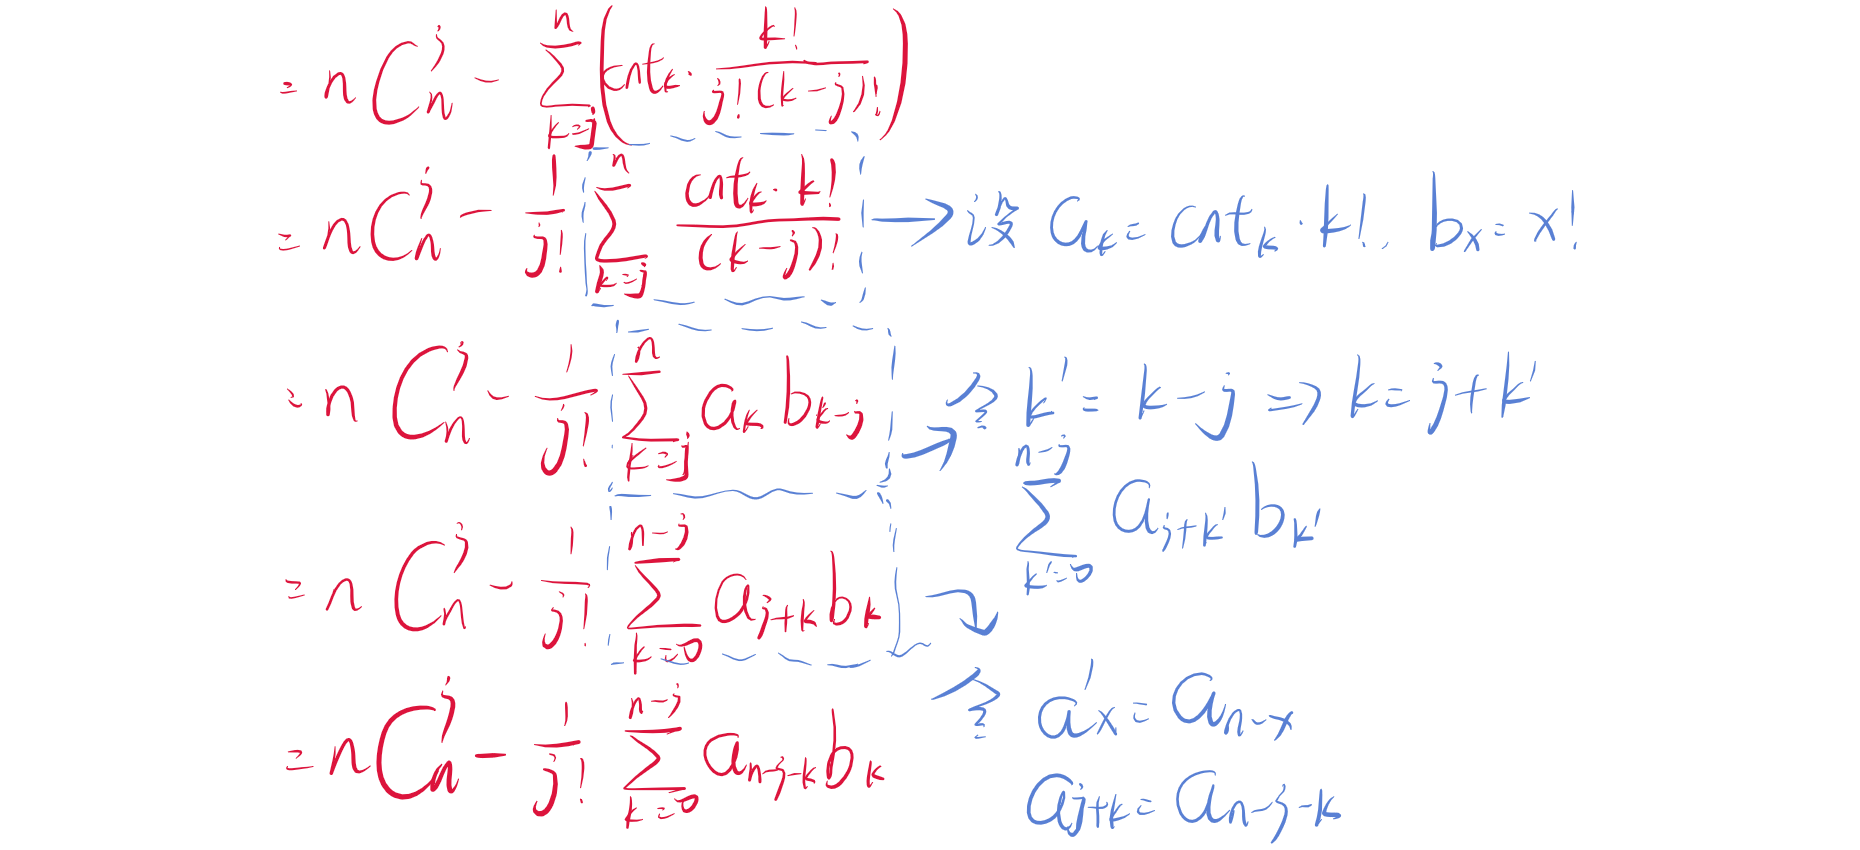 = n C_n^j - \sum_{k=j}^{n} \left( cnt_k \cdot \frac{k!}{j!(k-j)!} \right)
= n C_n^j - \frac{1}{j!} \sum_{k=j}^{n} \frac{cnt_k \cdot k!}{(k-j)!} → 设 a_k = cnt_k \cdot k!, b_x = x!
= n C_n^j - \frac{1}{j!} \sum_{k=j}^{n} a_k b_{k-j} → 令 k' = k-j ⇒ k = j+k'
\sum_{k'=0}^{n-j} a_{j+k'} b_{k'}
= n C_n^j - \frac{1}{j!} \sum_{k=0}^{n-j} a_{j+k} b_k
→ 令 a'_x = a_{n-x}
= n C_n^j - \frac{1}{j!} \sum_{k=0}^{n-j} a_{n-j-k} b_k
a_{j+k} = a_{n-j-k}